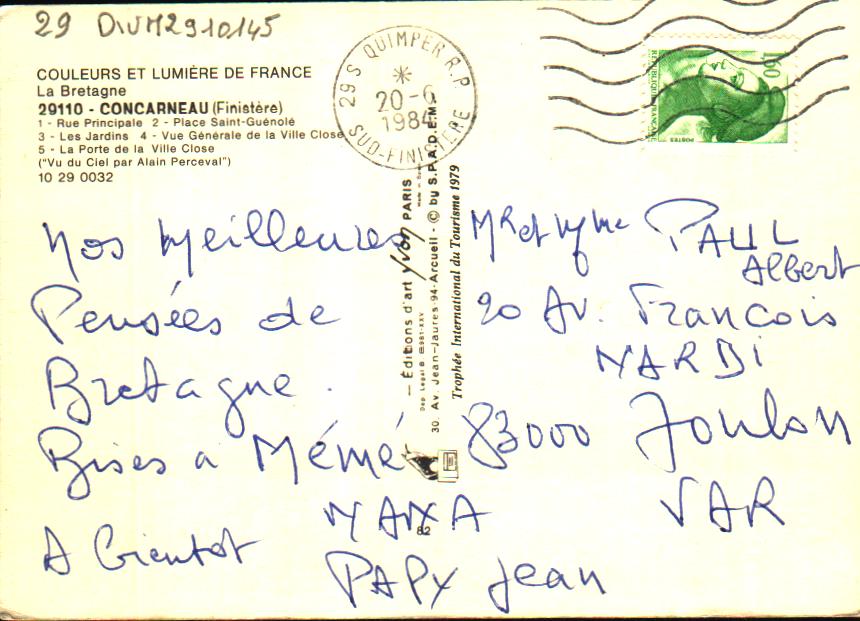 29 DIVM2910145
COULEURS ET LUMIÈRE DE FRANCE
La Bretagne
29110 - CONCARNEAU (Finistère)
1 - Rue Principale 2 - Place Saint-Guénolé
3 - Les Jardins 4 - Vue Générale de la Ville Close
5 - La Porte de la Ville Close
("Vu du Ciel par Alain Perceval")
10 29 0032
29 S QUIMPER R.P.
20-6
1984
SUD-FINISTERE
1,60
REPUBLIQUE FRANÇAISE
POSTES
Nos meilleures
Pensées de
Bretagne.
Bises a Mémé
A bientot
NANA
PAPY Jean
— Editions d'art yvon PARIS
30. Av. Jean-Jaures-94-Arcueil - © by S.P.A.D.E.M.
Trophée International du Tourisme 1979
82
Mr et Mme PAUL
Albert
20 Av. Francois
NARDI
83000 Toulon
VAR